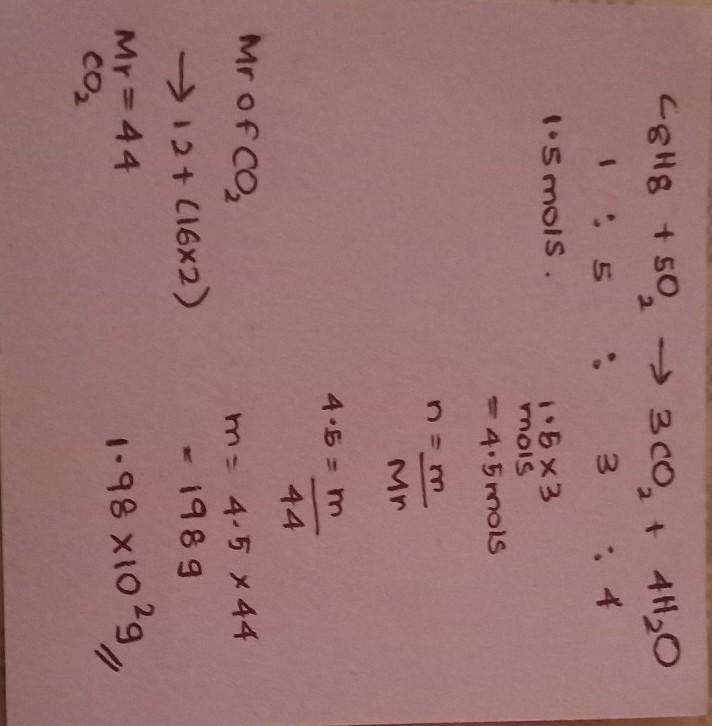 C8H8 + 5O₂ → 3CO₂ + 4H₂O
1 : 5 : 3 : 4
1.5mols.
1.5×3
mols
= 4.5mols
n = m/Mr
4.5 = m/44
m = 4.5 × 44
= 198g
1.98 ×10²g //
Mr of CO₂
→ 12 + (16×2)
Mr = 44
CO₂